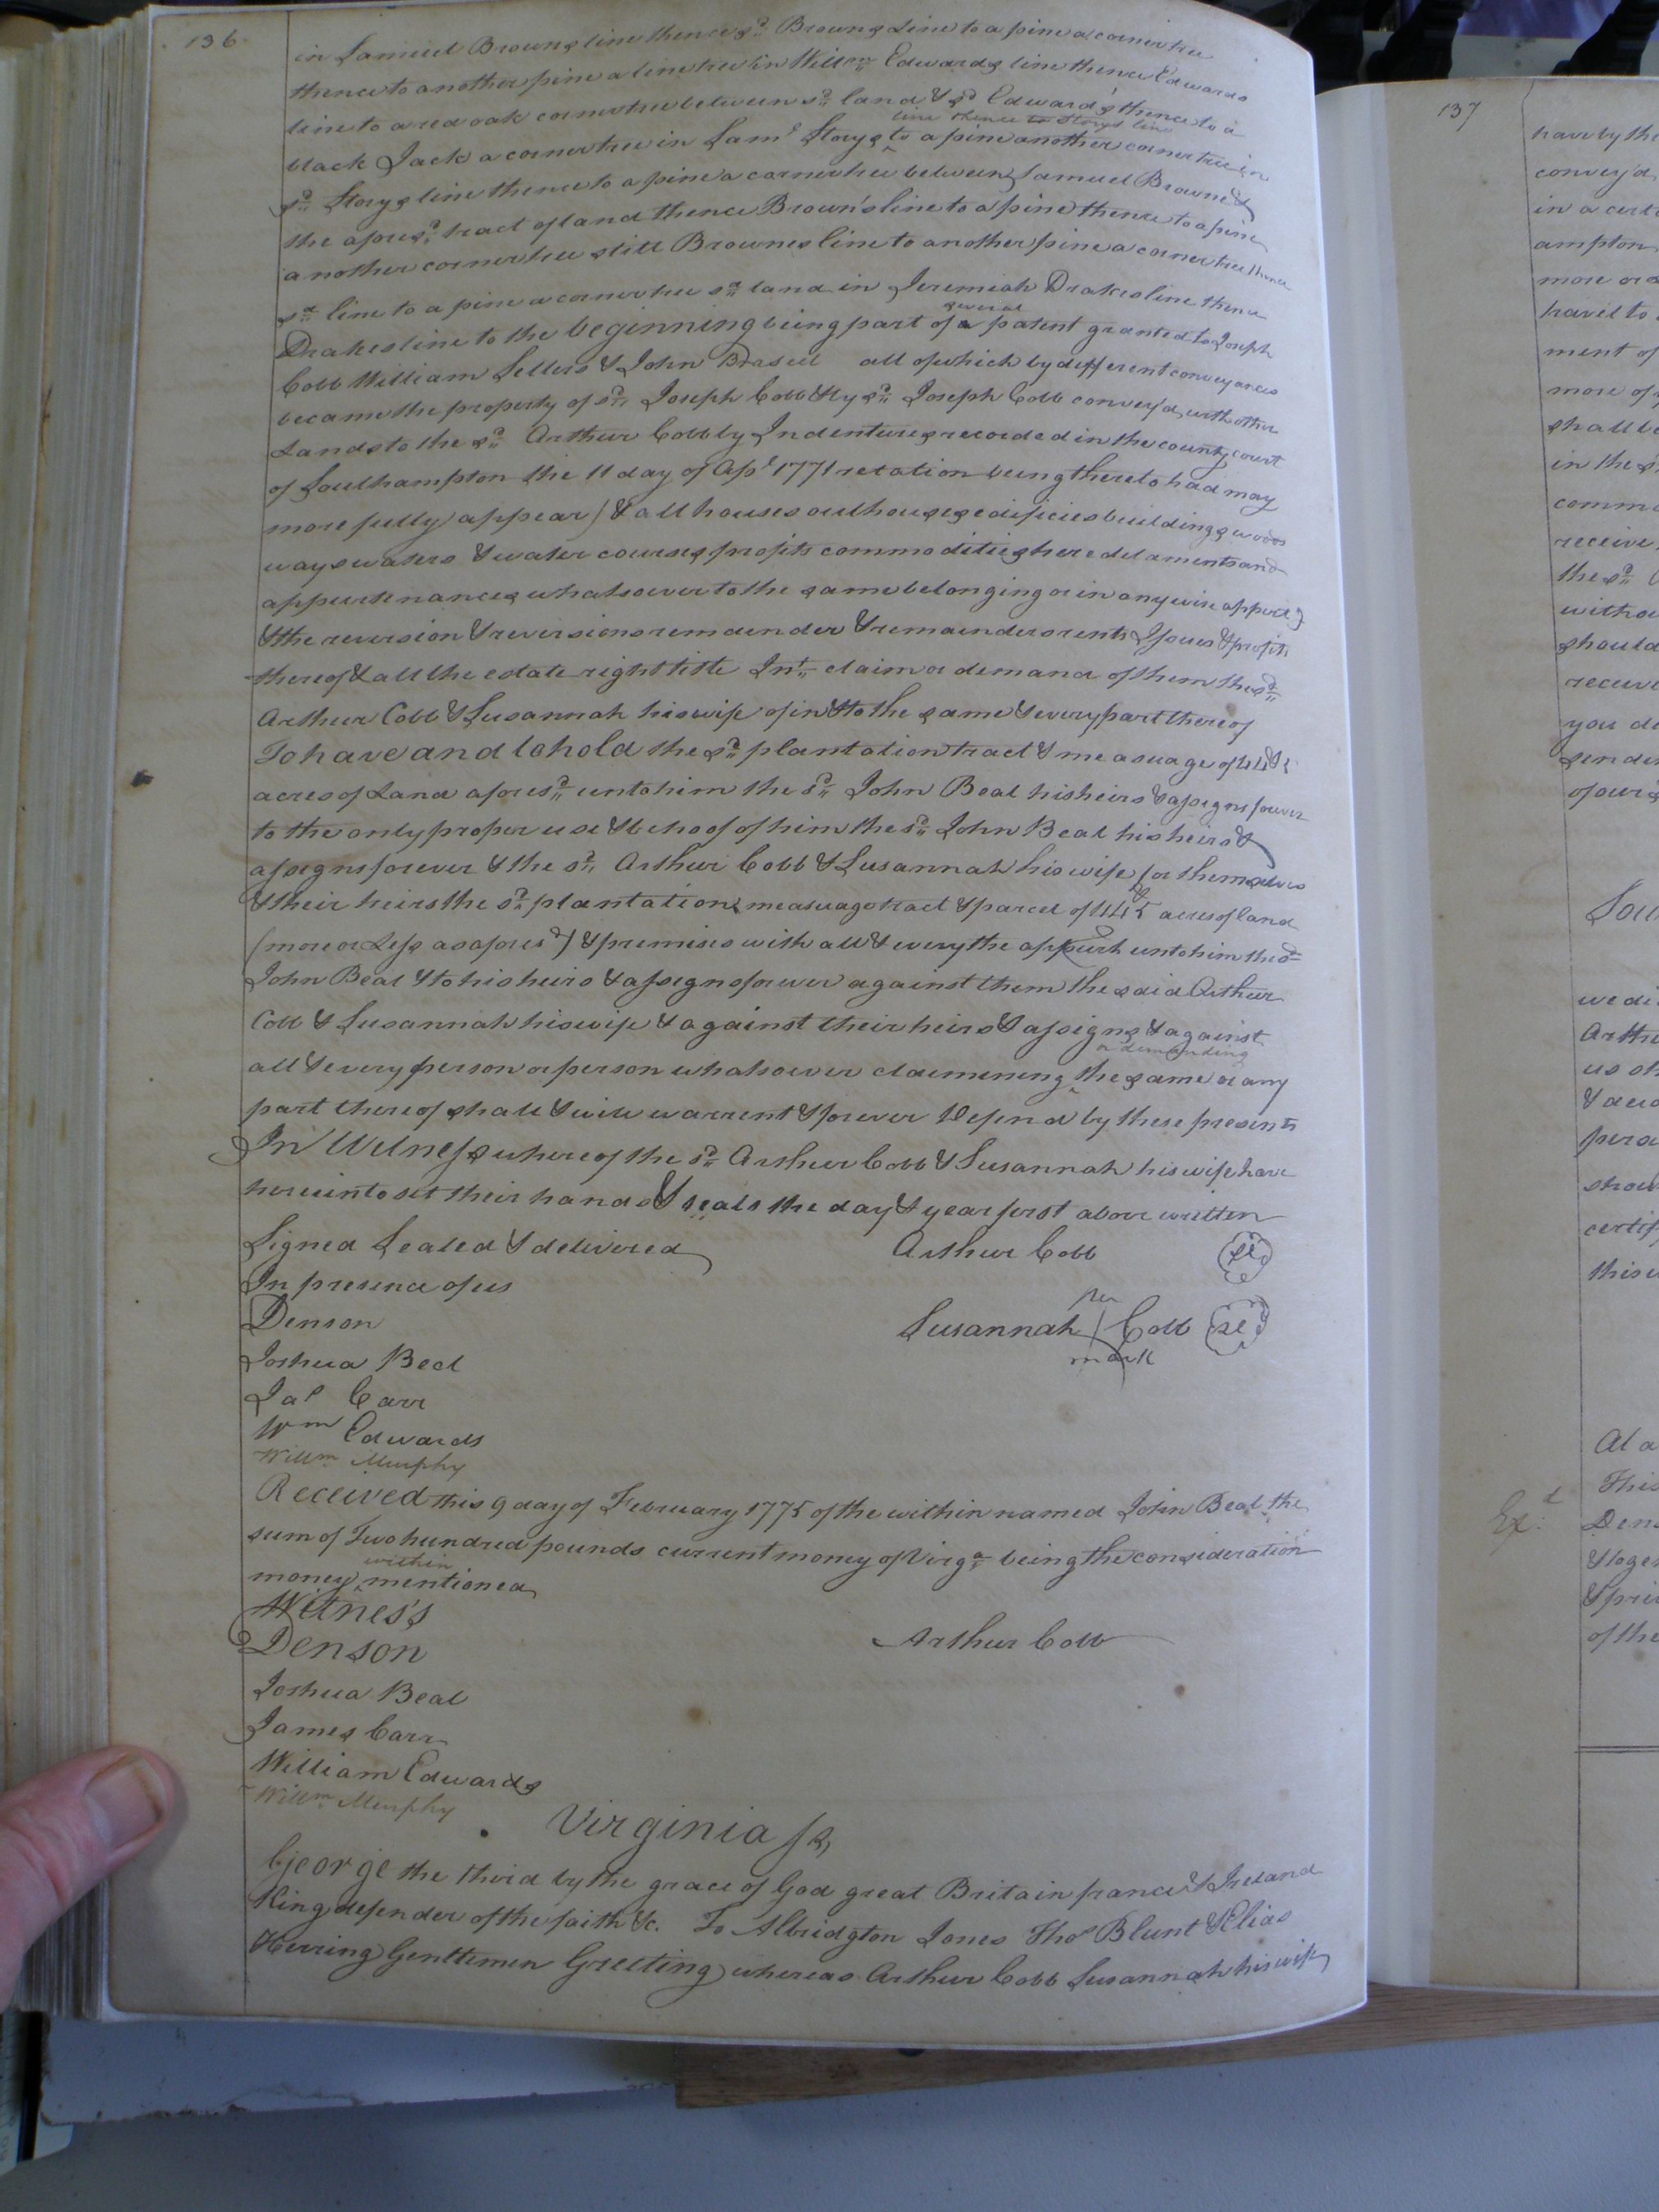 136
in Samuel Browns line thence sd. Browns Line to a pine a corner tree
thence to another pine a line tree in Willm. Edwards line thence Edwards
line to a red oak corner tree between sd. land & sd Edward's thence to a
line thence to Storys line
black Jack a corner tree in Saml Storys ^ to a pine another corner tree in
sd. Storys line thence to a pine a corner tree between Samuel Browne &
the aforesd. tract of land thence Brown's line to a pine thence to a pine
another corner tree still Brownes line to another pine a corner tree thence
sd. line to a pine a corner tree sd. land in Jeremiah Drakes line thence
several
Drakes line to the beginning being part of a patent granted to Joseph
Cobb William Sellers & John Braseel all of which by different conveyances
became the property of sd. Joseph Cobb & by sd. Joseph Cobb convey'd with other
Lands to the sd. Arthur Cobb by Indentures recorded in the county court
of Southampton the 11 day of Apl 1771 relation being thereto had may
more fully appear) & all houses outhouses edificies buildings woods
ways waters & water courses profits commodities heredetaments and
appurtenances whatsoever to the same belonging or in any wise appert.g
& the reversion & reversions remainder & remainders rents Issues & profits
thereof & all the estate right title Int. claim or demand of them the sd.
Arthur Cobb & Susannah his wife of in & to the same & every part thereof
To have and to hold the sd. plantation tract & measuage of 445
acres of Land aforesd. unto him the sd. John Beal his heirs & assigns forever
to the only proper use & behoof of him the sd. John Beal his heirs &
assigns forever & the sd. Arthur Cobb & Susannah his wife for themselves
& their heirs the sd. plantation measuage tract & parcel of 445 acres of land
(more or Less as aforesd) & premises with all & every the appurts unto him the sd
John Beal & to his heirs & assigns forever against them the said Arthur
Cobb & Susannah his wife & against their heirs & assigns & against
or demanding
all & every person or person whatsoever claimening ^ the same or any
part thereof shall & will warrent & forever Defend by these presents
In Witness whereof the sd. Arthur Cobb & Susannah his wife have
hereunto set their hands & seals the day & year first above written
Signed Sealed & delivered Arthur Cobb sld
In presence of us
Denson her
Susannah Cobb sld
Joshua Beal mark
Jas Carr
Wm Edwards
Willm. Murphy
Received this 9 day of February 1775 of the within named John Beal the
sum of Two hundred pounds current money of Virga. being the consideration
within
money ^ mentioned
Witness
Denson Arthur Cobb
Joshua Beal
James Carr
William Edwards
Willm. Murphy
Virginia ss
George the third by the grace of God great Britain france & Ireland
King defender of the faith &c. To Albridgton Jones Thos Blunt & Elias
Herring Genttemen Greeting whereas Arthur Cobb Susannah his wife
137
have by the
convey'd
in a cert
ampton
more or
have it to
ment of
more of
shall be
in the s
comm
receive
the sd.
witho
should
receive
you do
sender
of our s
Sou
we di
Arthu
us sh
perso
shou
certif
this
At a
This
Exd.
Dens
& toge
& pri
of the